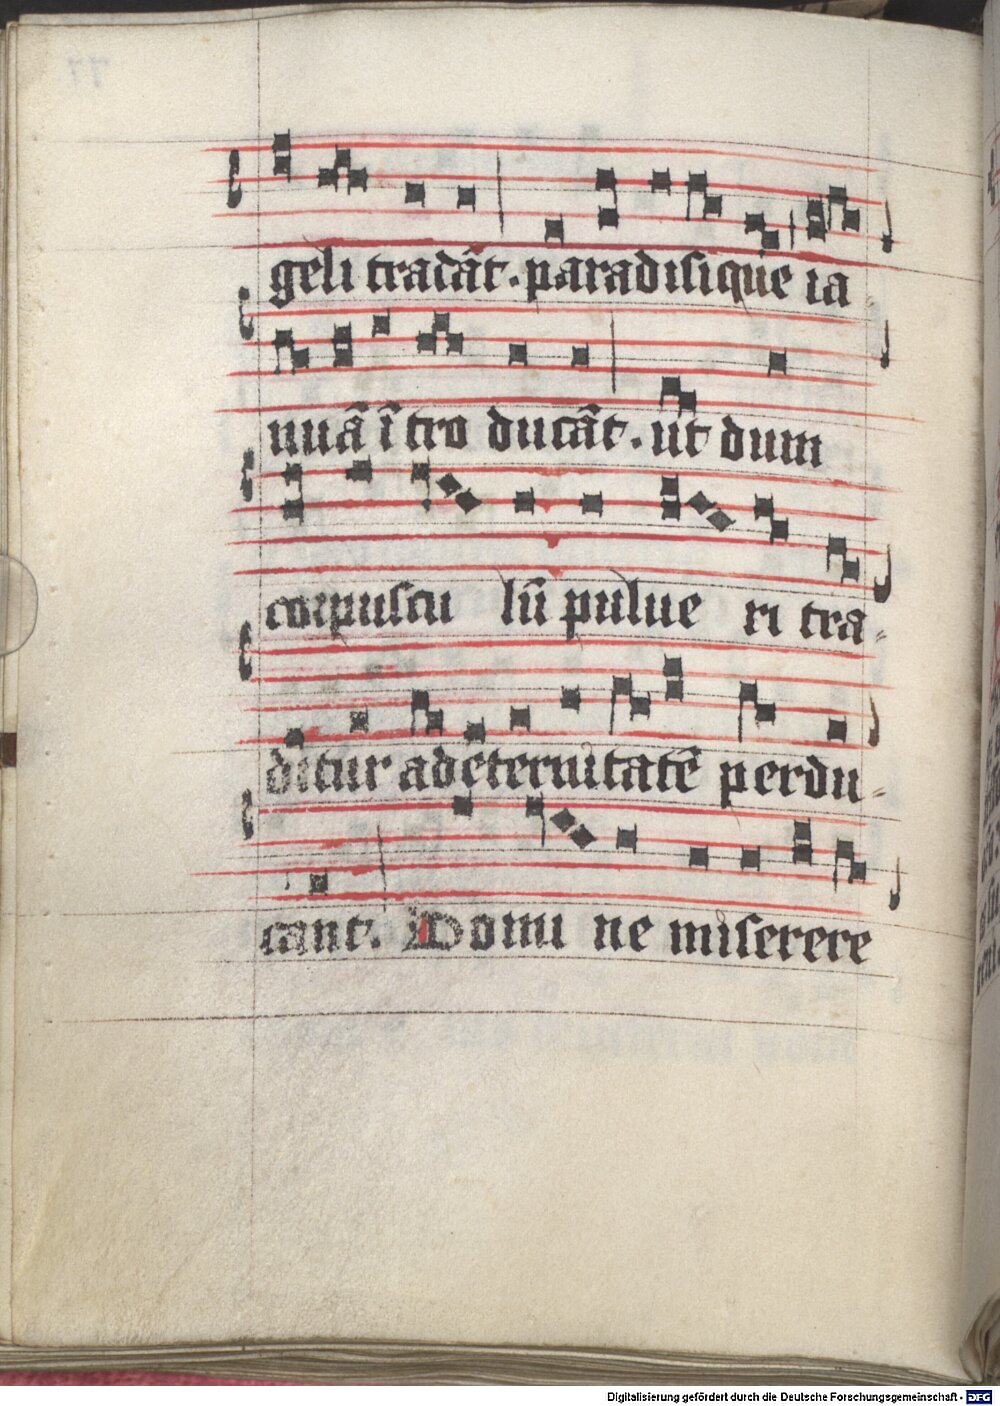 geli tradāt. paradisique ia
nuā ītro ducāt. ut dum
corpuscu lū pulue ri tra-
ditur ad eternitatē perdu-
cant. Domi ne miserere
Digitalisierung gefördert durch die Deutsche Forschungsgemeinschaft - DFG